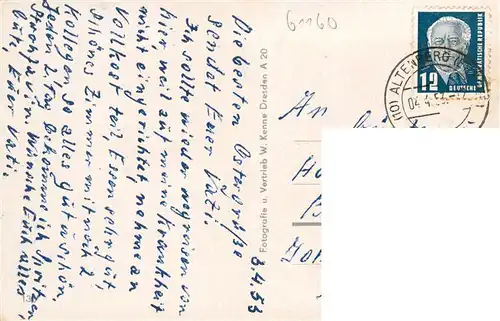 61160
3.4.53
Die besten Ostergrüße
sendet Euer Vati!
Ich sollte wieder abreisen von
hier weil auf meine Krankheit
nicht eingerichtet, nehme an
Vollkost teil, Essen sehr gut
schönes Zimmer mit noch 2
Kollegen, so alles gut u. schön.
Jeden 2. Tag bekomme ich Spritzen
Wünsche Euch alles
Gute, Euer Vati.
Fotografie u. Vertrieb W. Kenne Dresden A 20
An
12
DEUTSCHE
DEMOKRATISCHE REPUBLIK
ALTENBERG